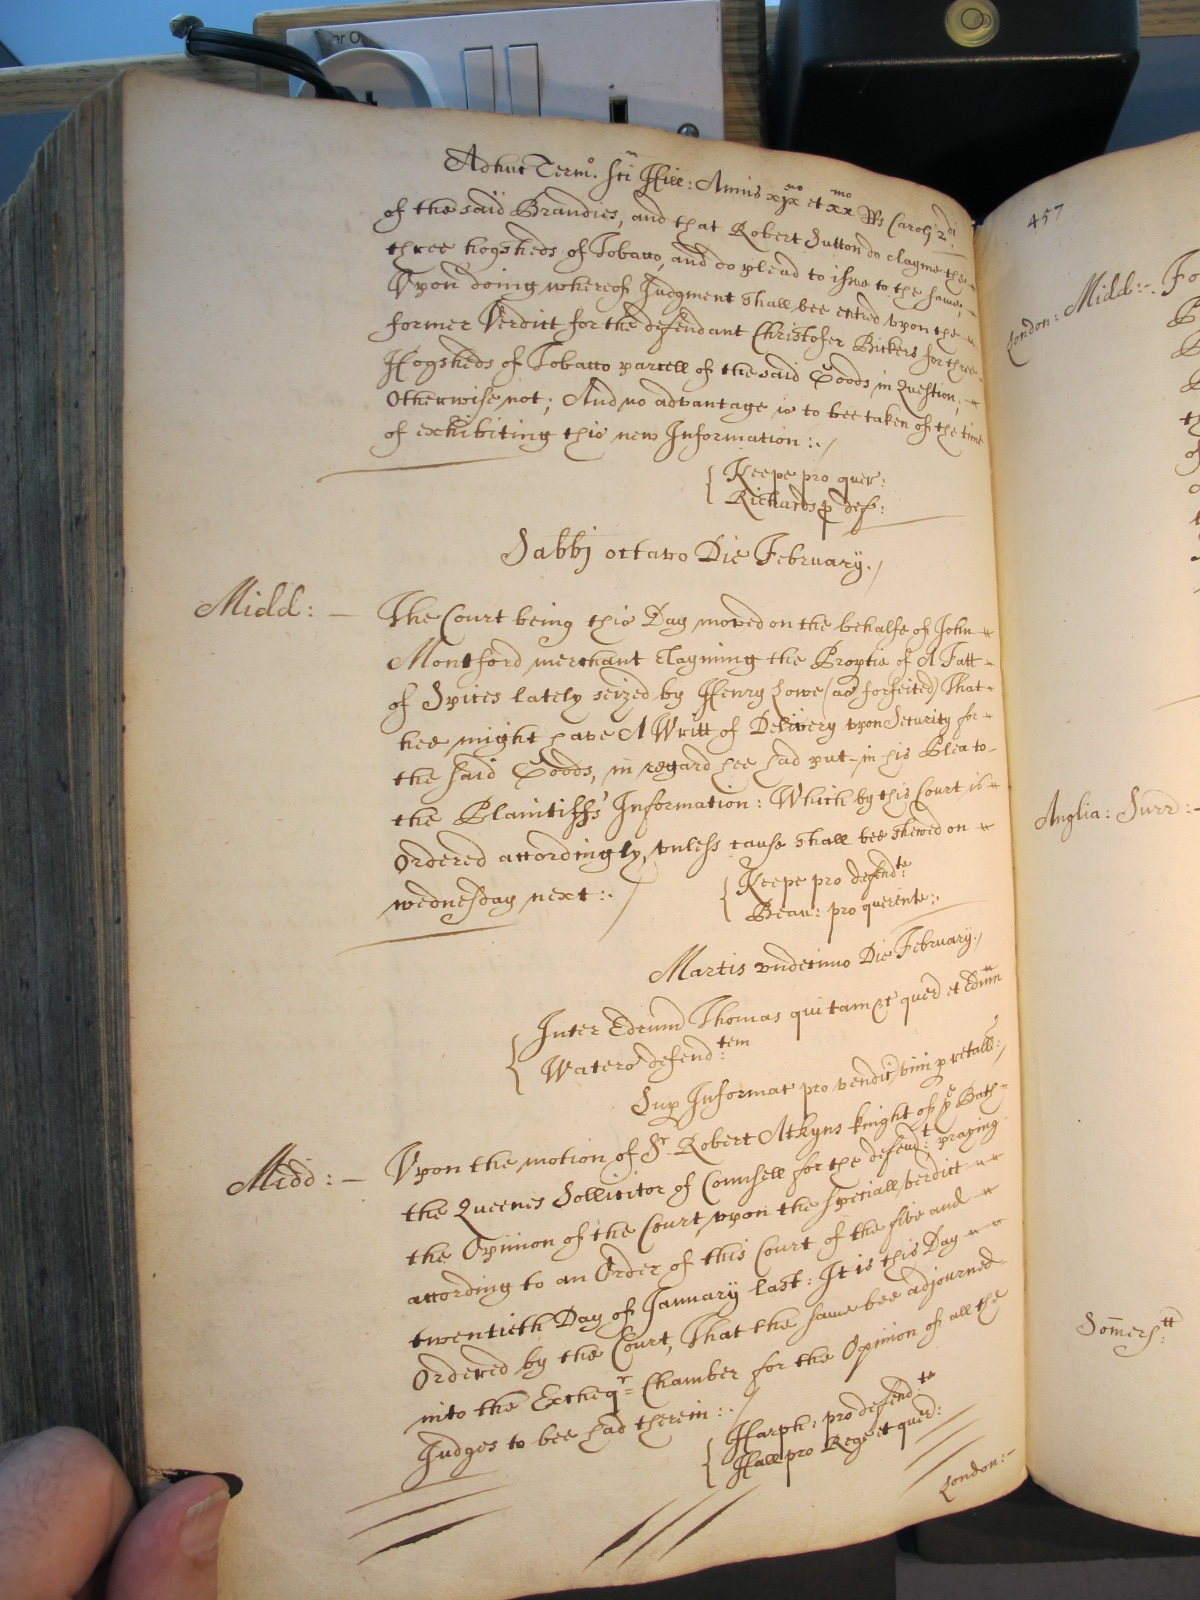 Adhuc Termo. Sci Hill: Annis xjx mo et xx mo Rs Caroli 2di
of the said Brandies, and that Robert Sutton do clayme the
three hogsheds of Tobacco, and do plead to issue to the same,
Vpon doing whereof Judgment shall bee entred vpon the
former Verdict for the defendant Christofer Bickers for three
Hogsheds of Tobacco parcell of the said Goods in Question,
Otherwise not; And no advantage is to bee taken of the time
of exhibiting this new Information :./
Keepe pro quer:
Richards p def:
Sabbj octavo Die February./
Midd: — The Court being this Day moved on the behalfe of John
Montford merchant Clayming the Proptie of A Fatt
of Spices lately seized by Henry Lowe (as forfeited) That
hee might have A Writt of Delivery vpon Security for
the said Goods, in regard hee had put in his Plea to
the Plaintiffs Information: Which by this Court is
Ordered accordingly, vnless cause shall bee shewed on
wednesday next :. /
Keepe pro defendte
Beau: pro querente:.
Martis vndecimo Die February./
Inter Edmund Thomas qui tam &c quer et Edm
Waters defend:tem
Sup Informac pro vendic vini p retall:/
Midd: — Vpon the motion of Sr. Robert Atkyns knight of ye Bath
the Queenes Sollicitor of Counsell for the defend:t praying
the Opinion of the Court, vpon the speciall verdict
according to an Order of this Court of the five and
twentieth Day of January last: It is this Day
Ordered by the Court, That the same bee adjourned
into the Excheqr= Chamber for the Opinion of all the
Judges to bee had therein :. /
Harph: pro defend:te
Hall pro Rege et quer:
London:-
457
London: Midd:-. Fo
Anglia: Surr:-
Somers:tt